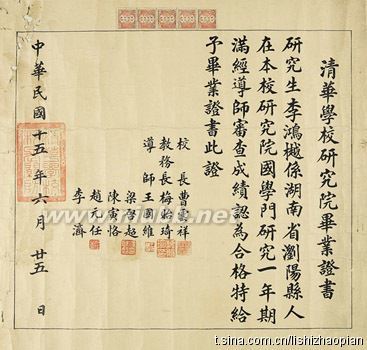 清華學校研究院畢業證書
研究生李鴻樾係湖南省瀏陽縣人
在本校研究院國學門研究一年期
滿經導師審查成績認為合格特給
予畢業證書此證
校長曹雲祥
教務長梅貽琦
導師王國維
梁啓超
陳寅恪
趙元任
李濟
中華民國十五年六月廿五日
t.sina.com.cn/lishizhaopian